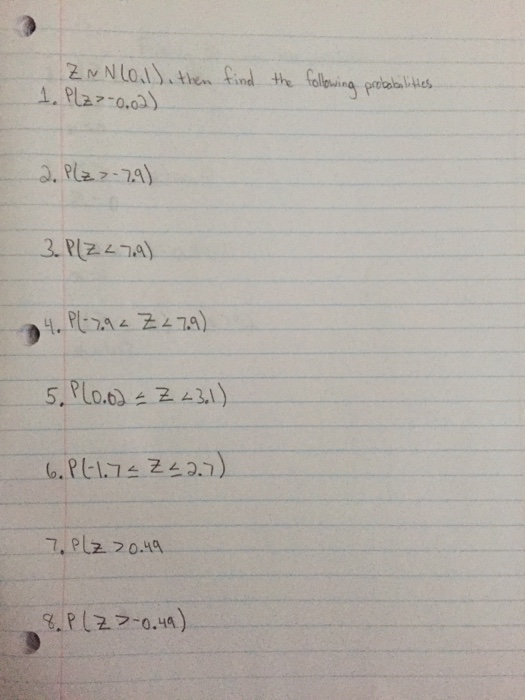 Z ~ N(0,1), then find the following probabilities
1. P(Z>-0.02)
2. P(Z>-7.9)
3. P(Z<7.9)
4. P(-7.9< Z<7.9)
5. P(0.02 ≤ Z <3.1)
6. P(-1.7≤ Z≤2.7)
7. P(Z >0.49
8. P(Z>-0.49)